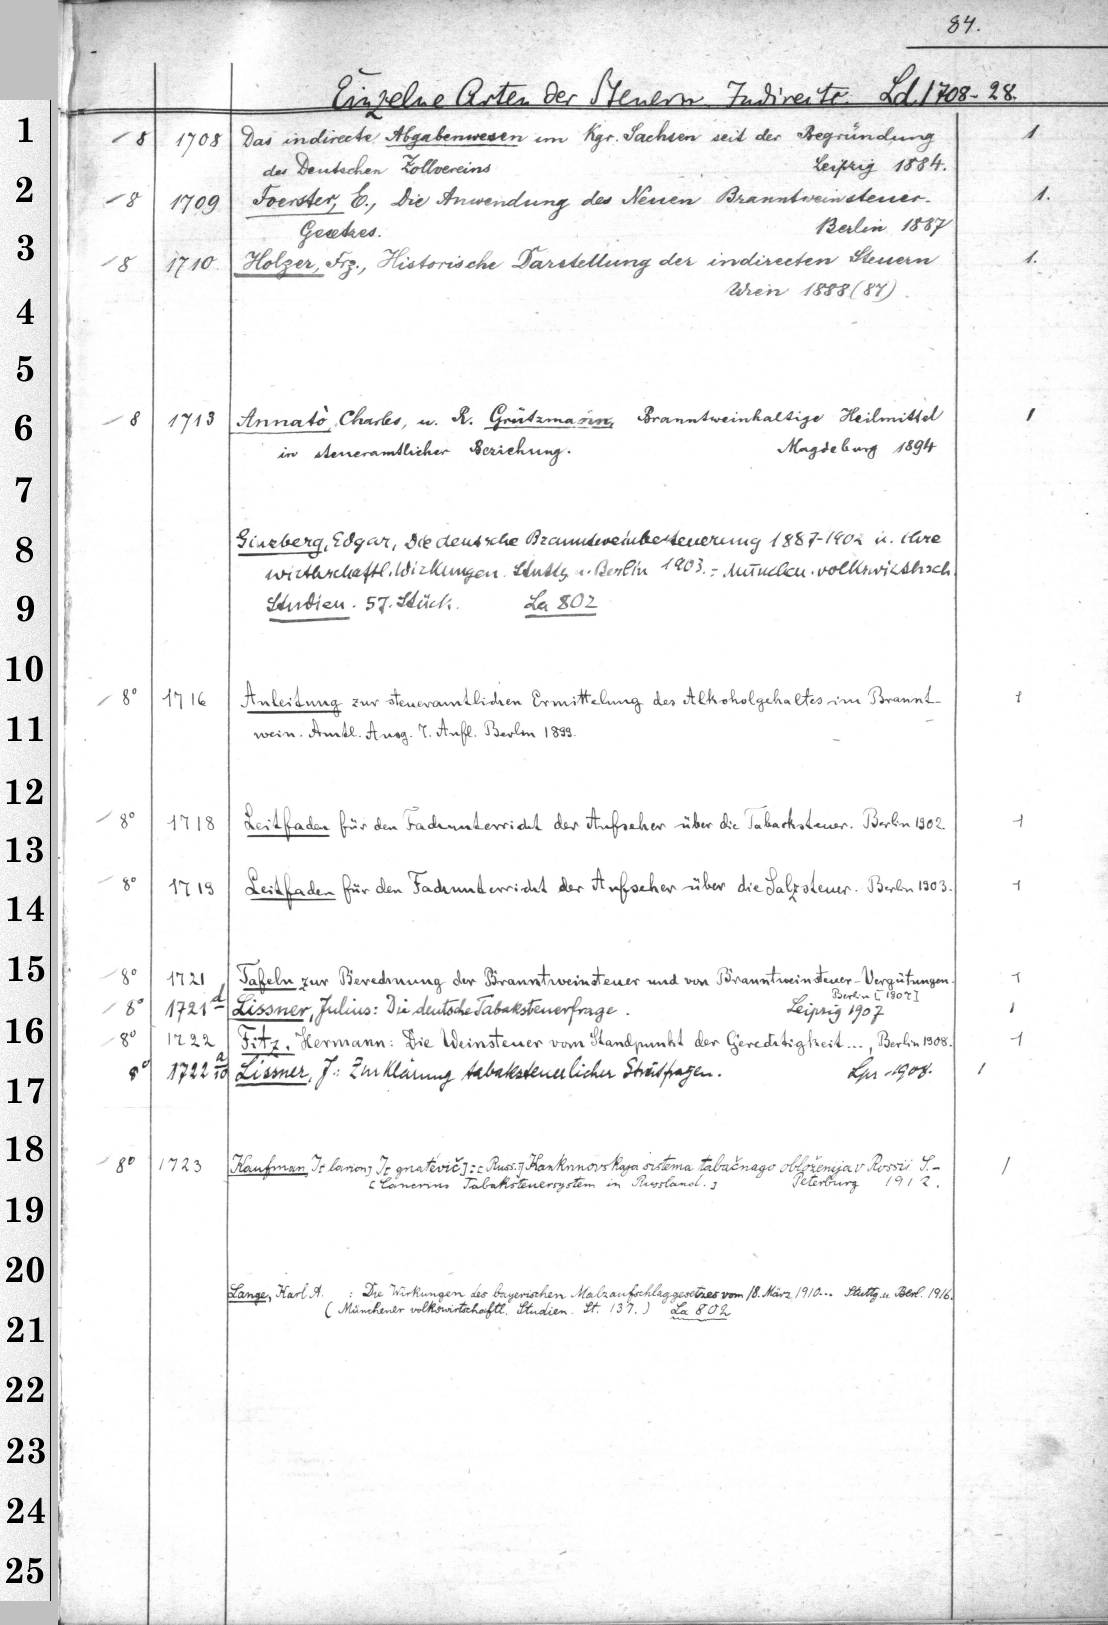 84.
Einzelne Arten der Steuern. Indirecte. Ld. 1708-28.
1
8 1708 Das indirecte Abgabenwesen im Kgr. Sachsen seit der Begründung 1
des Deutschen Zollvereins Leipzig 1884.
2
8 1709 Foerster, E., Die Anwendung des Neuen Branntweinsteuer- 1.
Gesetzes. Berlin 1887
3
8 1710 Holzer, Frz., Historische Darstellung der indirecten Steuern 1.
Wien 1888 (87)
4
5
6
8 1713 Annatò, Charles, u. R. Grützmann, Branntweinhaltige Heilmittel 1
in steueramtlicher Beziehung. Magdeburg 1894
7
8
Ginzberg, Edgar, Die deutsche Branntweinbesteuerung 1887-1902 u. ihre
wirthschaftl. Wirkungen. Stuttg. u. Berlin 1903. = München. volkswirthsch.
9
Studien. 57. Stück. La 802
10
8° 1716 Anleitung zur steueramtlichen Ermittelung des Alkoholgehaltes im Brannt- 1
11
wein. Amtl. Ausg. 7. Aufl. Berlin 1899.
12
8° 1718 Leitfaden für den Fachunterricht der Aufseher über die Tabacksteuer. Berlin 1902 1
13
8° 1719 Leitfaden für den Fachunterricht der Aufseher über die Salzsteuer. Berlin 1903. 1
14
15
8° 1721 Tafeln zur Berechnung der Branntweinsteuer und von Branntweinsteuer-Vergütungen. 1
Berlin [1907]
8° 1721d Lissner, Julius: Die deutsche Tabaksteuerfrage. Leipzig 1907 1
16
8° 1722 Fitz, Hermann: Die Weinsteuer vom Standpunkt der Gerechtigkeit..., Berlin 1908. 1
8° 1722 a/10 Lissner, J.: Zur Klärung tabaksteuerlicher Streitfragen. Lpz. 1908. 1
17
18
8° 1723 Kaufman, I[larion] I[gnatévič]: [Russ.] Kankrinovskaja sistema tabačnago obloženija v Rossii S.- 1
[Cancrins Tabaksteuersystem in Russland.] Peterburg 1912.
19
20
Lange, Karl A. : Die Wirkungen des bayerischen Malzaufschlaggesetzes vom 18. März 1910... Stuttg. u. Berl. 1916.
(Münchener volkswirtschaftl. Studien. St. 137.) La 802
21
22
23
24
25